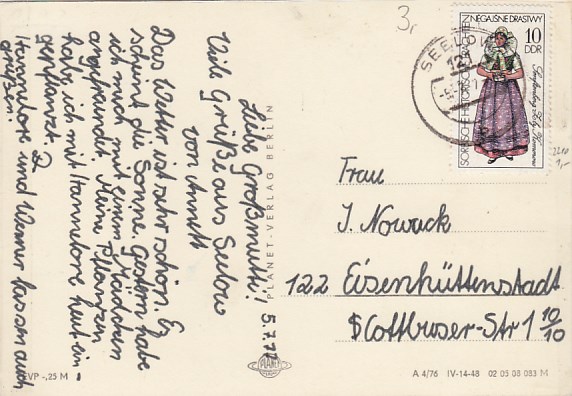 Liebe Großmutti! 5.7.77
Viele Grüße aus Seelow
von Annett
Das Wetter ist sehr schön. Es
scheint die Sonne. Gestern habe
ich mich mit einem Mädchen
angefreundet. Meine Pflanzen
habe ich mit Hannelore heut ein
gepflanzt.
Hannelore und Werner lassen auch
grüßen.
PLANET-VERLAG BERLIN
PLANET
EVP -,25 M
3,
SEELOW
121
NEGAJŠNE DRASTWY
10
DDR
SORBISCHE HISTORISCHE TRACHTEN
1,-
Frau
J. Nowack
122 Eisenhüttenstadt
Cottbuser-Str 1 10/10
A 4/76 IV-14-48 02 05 08 083 M